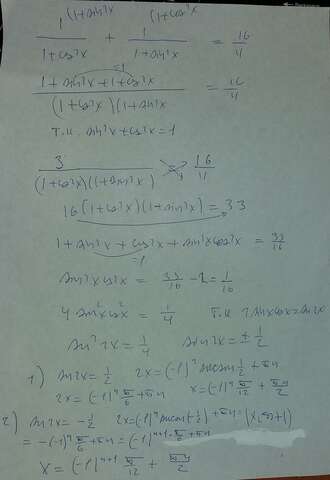 1 (1+sin²x    (1+cos²x
1/(1+cos²x) + 1/(1+sin²x) = 16/11
(1+sin²x+1+cos²x)/((1+cos²x)(1+sin²x) = 16/11
=1
т.к. sin²x+cos²x=1
3/((1+cos²x)(1+sin²x)) = 16/11
16(1+cos²x)(1+sin²x)=33
1+sin²x+cos²x+sin²xcos²x = 33/16
=1
sin²xcos²x = 33/16 -2=1/16
4sin²xcos²x = 1/4   т.к 2sinxcosx=sin2x
sin²2x=1/4   sin2x=±1/2
1) sin2x=1/2   2x=(-1)ⁿarcsin1/2+πn
2x=(-1)ⁿπ/6+πn   x=(-1)ⁿπ/12+πn/2
2) sin2x=-1/2   2x=(-1)ⁿarcsin(-1/2)+πn=
=-(-1)ⁿπ/6+πn=(-1)ⁿ⁺¹π/6+πn
x=(-1)ⁿ⁺¹π/12+πn/2